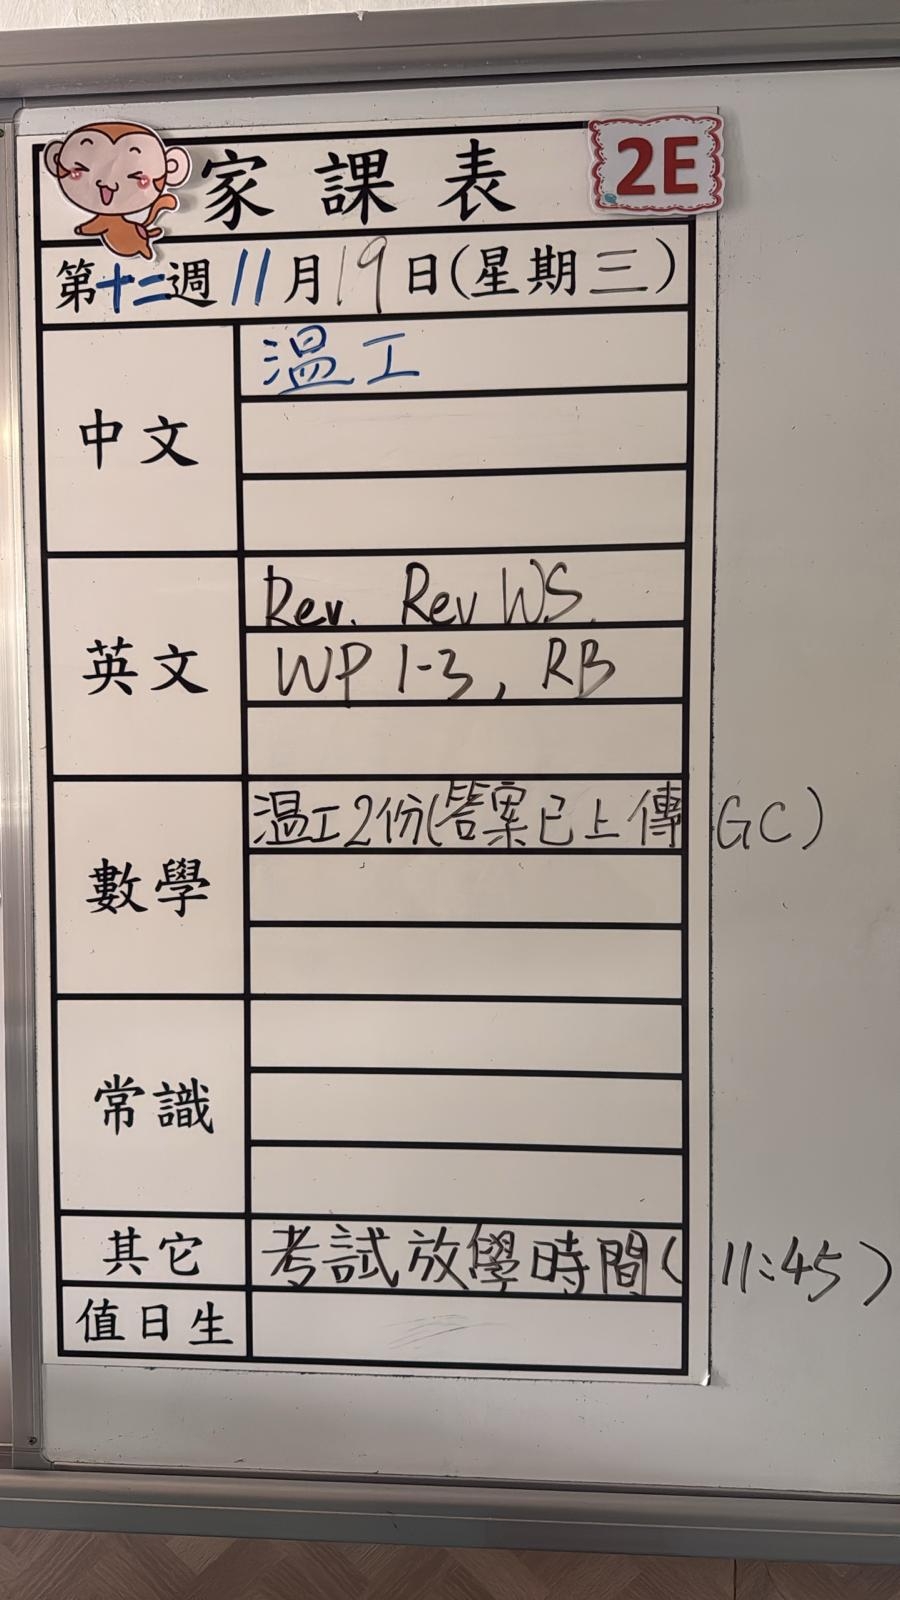 家課表 2E
第十二週 11月19日(星期三)
中文
温工
英文
Rev. Rev WS.
WP 1-3, RB
數學
温工2份(答案已上傳 GC)
常識
其它
考試放學時間( 11:45)
值日生